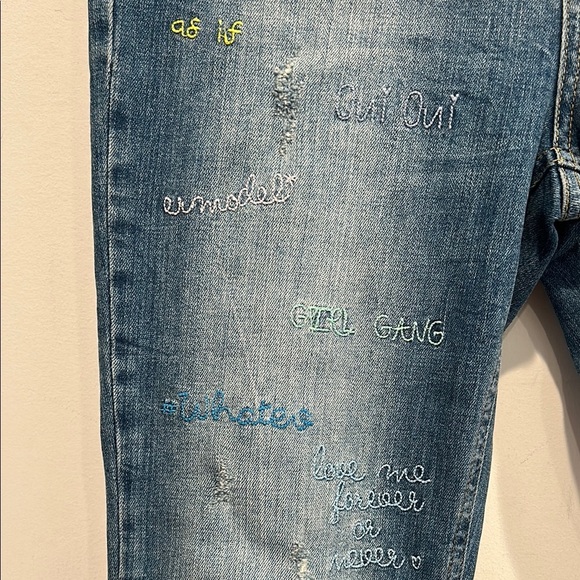 as if
Oui Oui
ermodel*
GIRL GANG
#Whatev
love me
forever
or
never ♡